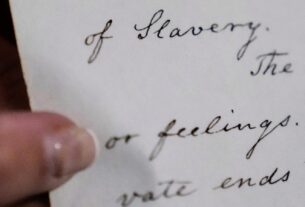 of Slavery.
The
or feelings.
vate ends